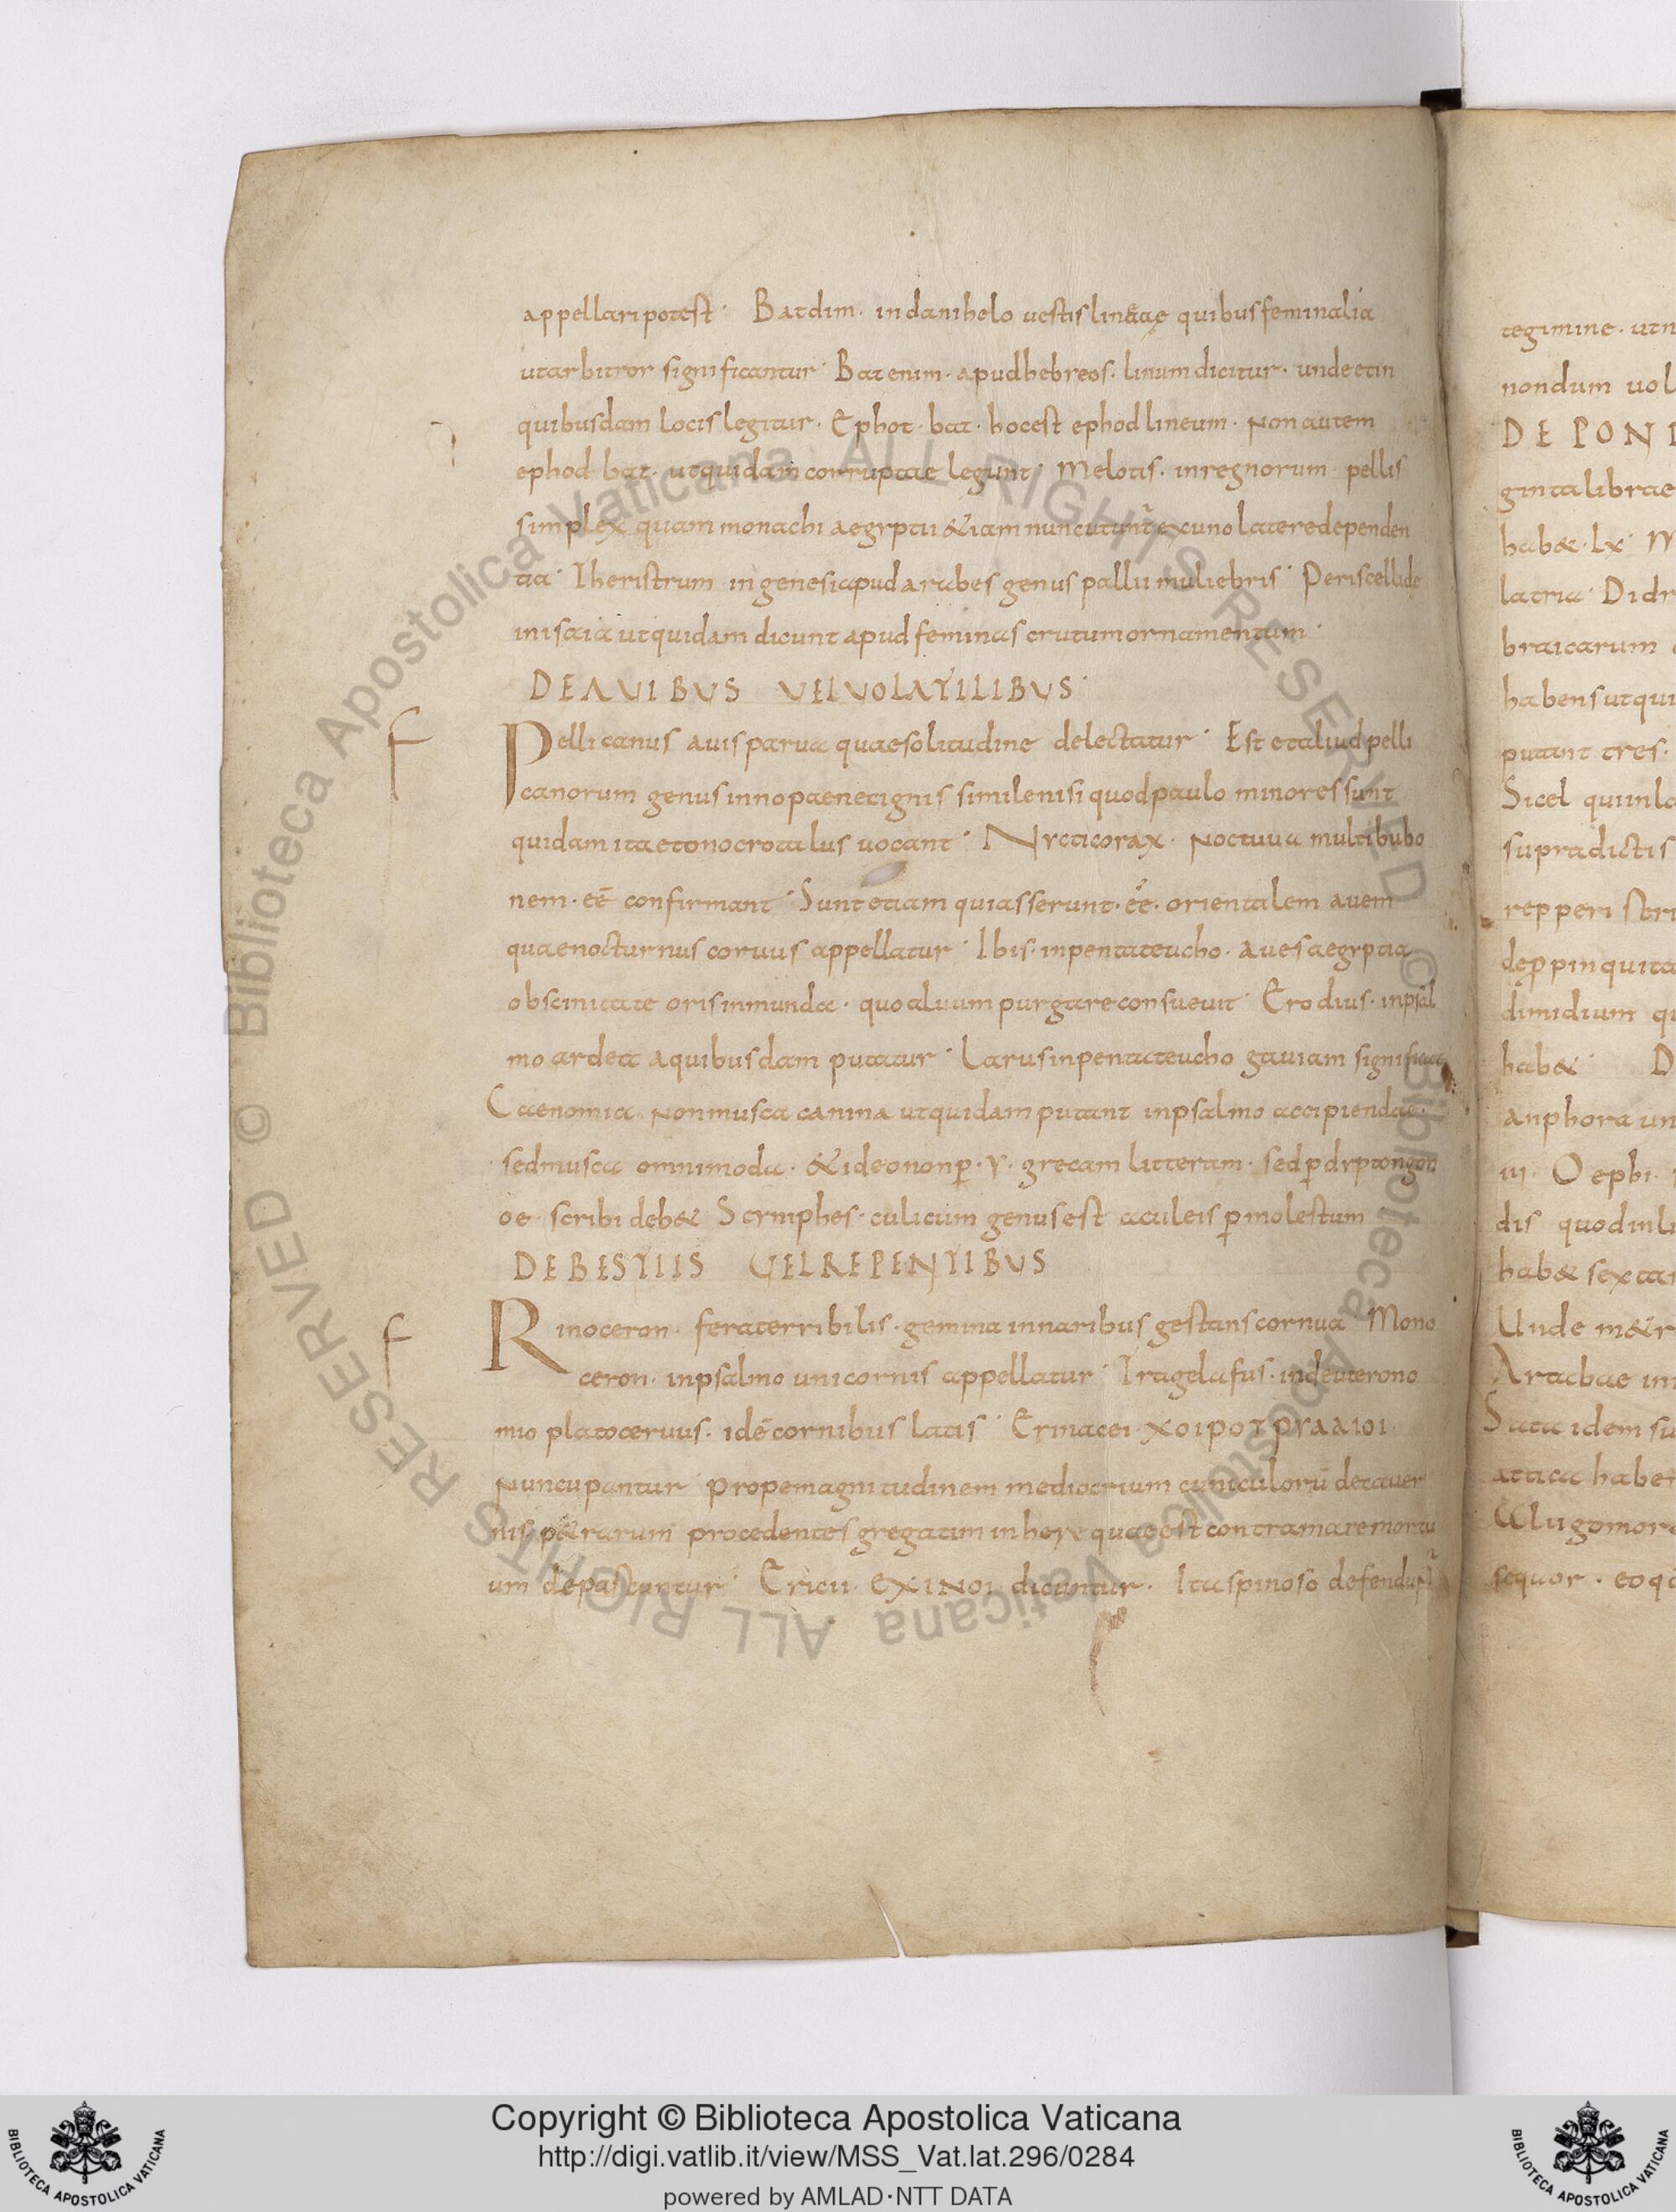 appellari potest · Batdim · in danihelo uestis lineae quibus feminalia
ut arbitror significantur · Bat enim · apud hebreos · linum dicitur · unde et in
quibusdam locis legitur · Ephot · bat · hoc est ephod lineum · Non autem
ephod bat · ut quidam corruptae legunt · Melotis · in regnorum · pellis
simplex quam monachi aegyptii &iam nunc utunt̃ ex uno latere dependen
tia · Theristrum in genesi apud arabes genus pallii muliebris · Periscellide
in isaia ut quidam dicunt apud feminas crurum ornamentum ·
DE AUIBUS UEL UOLATILIBUS ·
Pellicanus auis parua quae solitudine delectatur · Est et aliud pelli
canorum genus in nopaene cignis simile nisi quod paulo minores sunt
quidam ita et onocrotalus uocant · Nycticorax · Noctuua multi bubo
nem · eē confirmant · Sunt etiam qui asserunt · eē · orientalem auem
quae nocturnus coruus appellatur · Ibis · in pentateucho · aues aegyptia
obscinitate oris inmunda · quo aluum purgare consueuit · Erodius · in psal
mo ardea a quibusdam putatur · Larus in pentateucho gauiam significat
Caenomia · Non musca canina ut quidam putant in psalmo accipiendae ·
sed musca omnimoda · & ideo non p̱ · y · grecam litteram · sed p̱ dyptongon
oe · scribi deb& Scyniphes · culicum genus est aculeis p̱molestum
DE BESTIIS UEL REPENTIBUS
Rinoceron · fera terribilis · gemina in naribus gestans cornua Mono
ceron · in psalmo unicornis appellatur · Tragelafus · in deuterono
mio platoceruus · idē cornibus latis · Erinacei · χοιρογρυλλιοι ·
Nuncupantur prope magnitudinem mediocrium cuniculorū de cauer
nis p&rarum procedentes gregatim in here quae est contra mare mortu
um depascuntur · Ericii · EXINOI dicuntur · Ita spinoso defendunt̃
tegimine · ut n
nondum uol
DE PON
ginta librae
hab& · lx · M
latria · Didr
braicarum
habens ut qui
putant tres ·
Sicel qui in la
supradictis
repperi scri
dimidium qu
hab& · D
anphora un
iii · Oephi ·
dis quod in li
hab& sextar
Unde m&r
Artabae in
Sata idem su
attica habe
sequor · eo q
Copyright © Biblioteca Apostolica Vaticana
http://digi.vatlib.it/view/MSS_Vat.lat.296/0284
powered by AMLAD·NTT DATA
BIBLIOTECA APOSTOLICA VATICANA
BIBLIOTECA APOSTOLICA VATICANA
© Biblioteca Apostolica Vaticana ALL RIGHTS RESERVED © Biblioteca Apostolica Vaticana ALL RIGHTS RESERVED